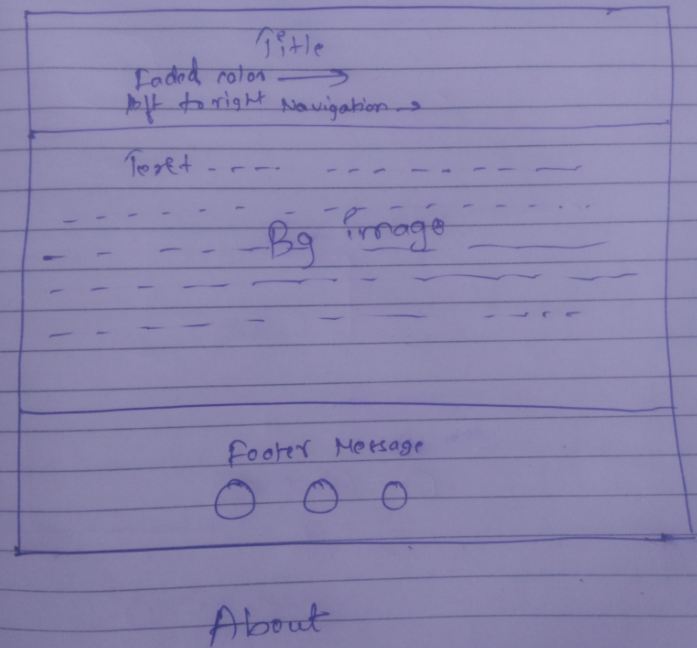 Title
Faded color
left to right Navigation
Text
Bg image
Footer Message
About